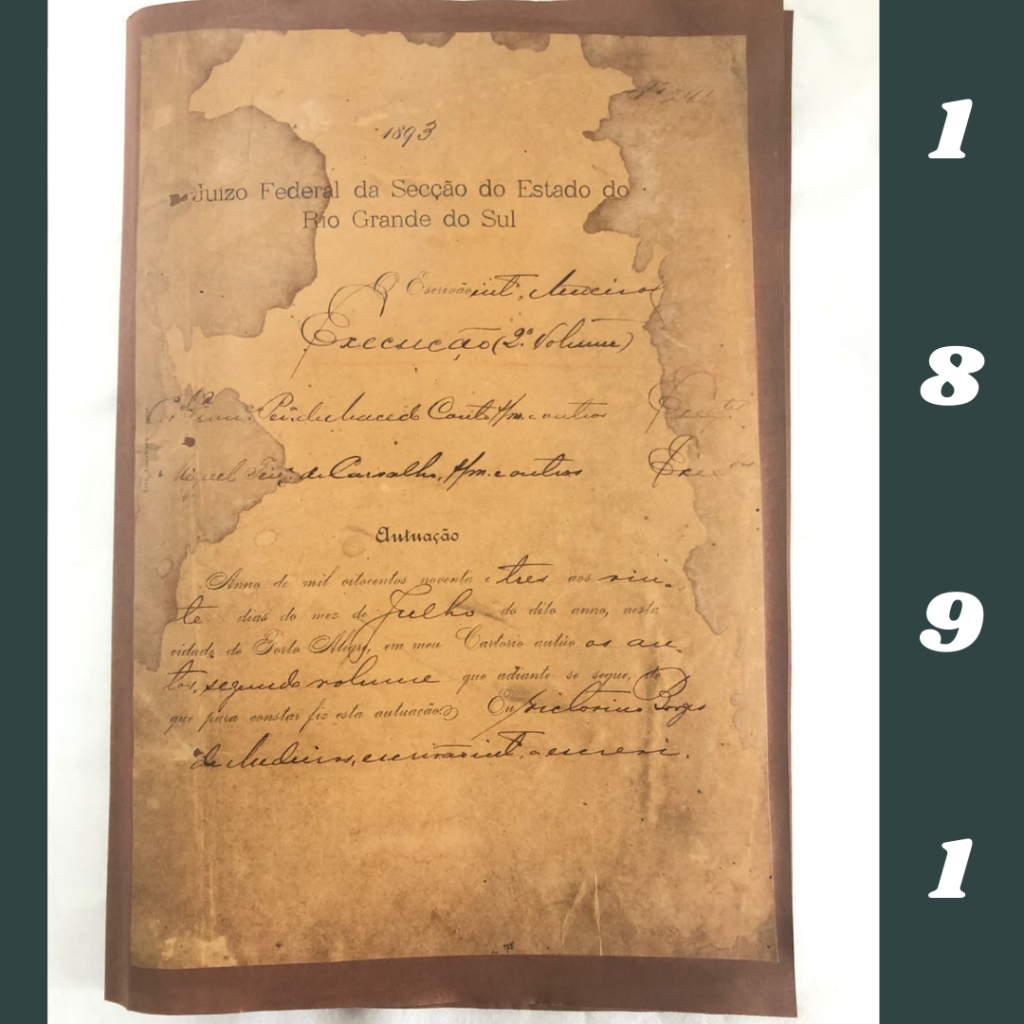 1893
Juizo Federal da Secção do Estado do
Rio Grande do Sul
O Escrivão int.
Execução (2.º Volume)
de Macedo Couto, s/m. e outros
de Carvalho, s/m. e outros
Autuação
Anno de mil oitocentos noventa e tres aos vin-
te dias do mez de Julho do dito anno, nesta
cidade de Porto Alegre, em meu Cartorio autúo os au-
tos, segundo volume que adiante se segue, do
que para constar fiz esta autuação. Eu Victorino Borges
de Medeiros, escrivão int. o escrevi.
1
8
9
1